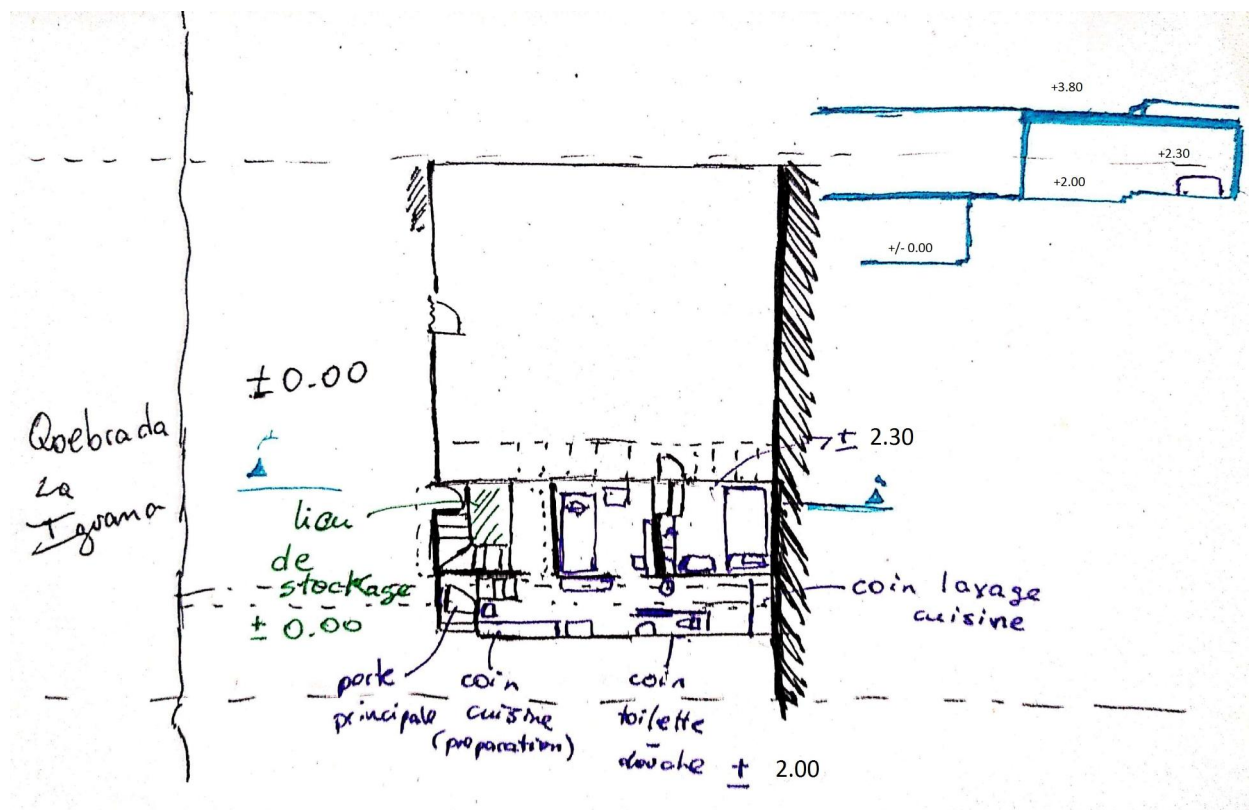 +3.80
+2.30
+2.00
+/- 0.00
±0.00
Quebrada
La
Iguana
± 2.30
lieu
de
stockage
± 0.00
coin lavage
cuisine
porte
principale
coin
cuisine
(preparation)
coin
toilette
douche ± 2.00